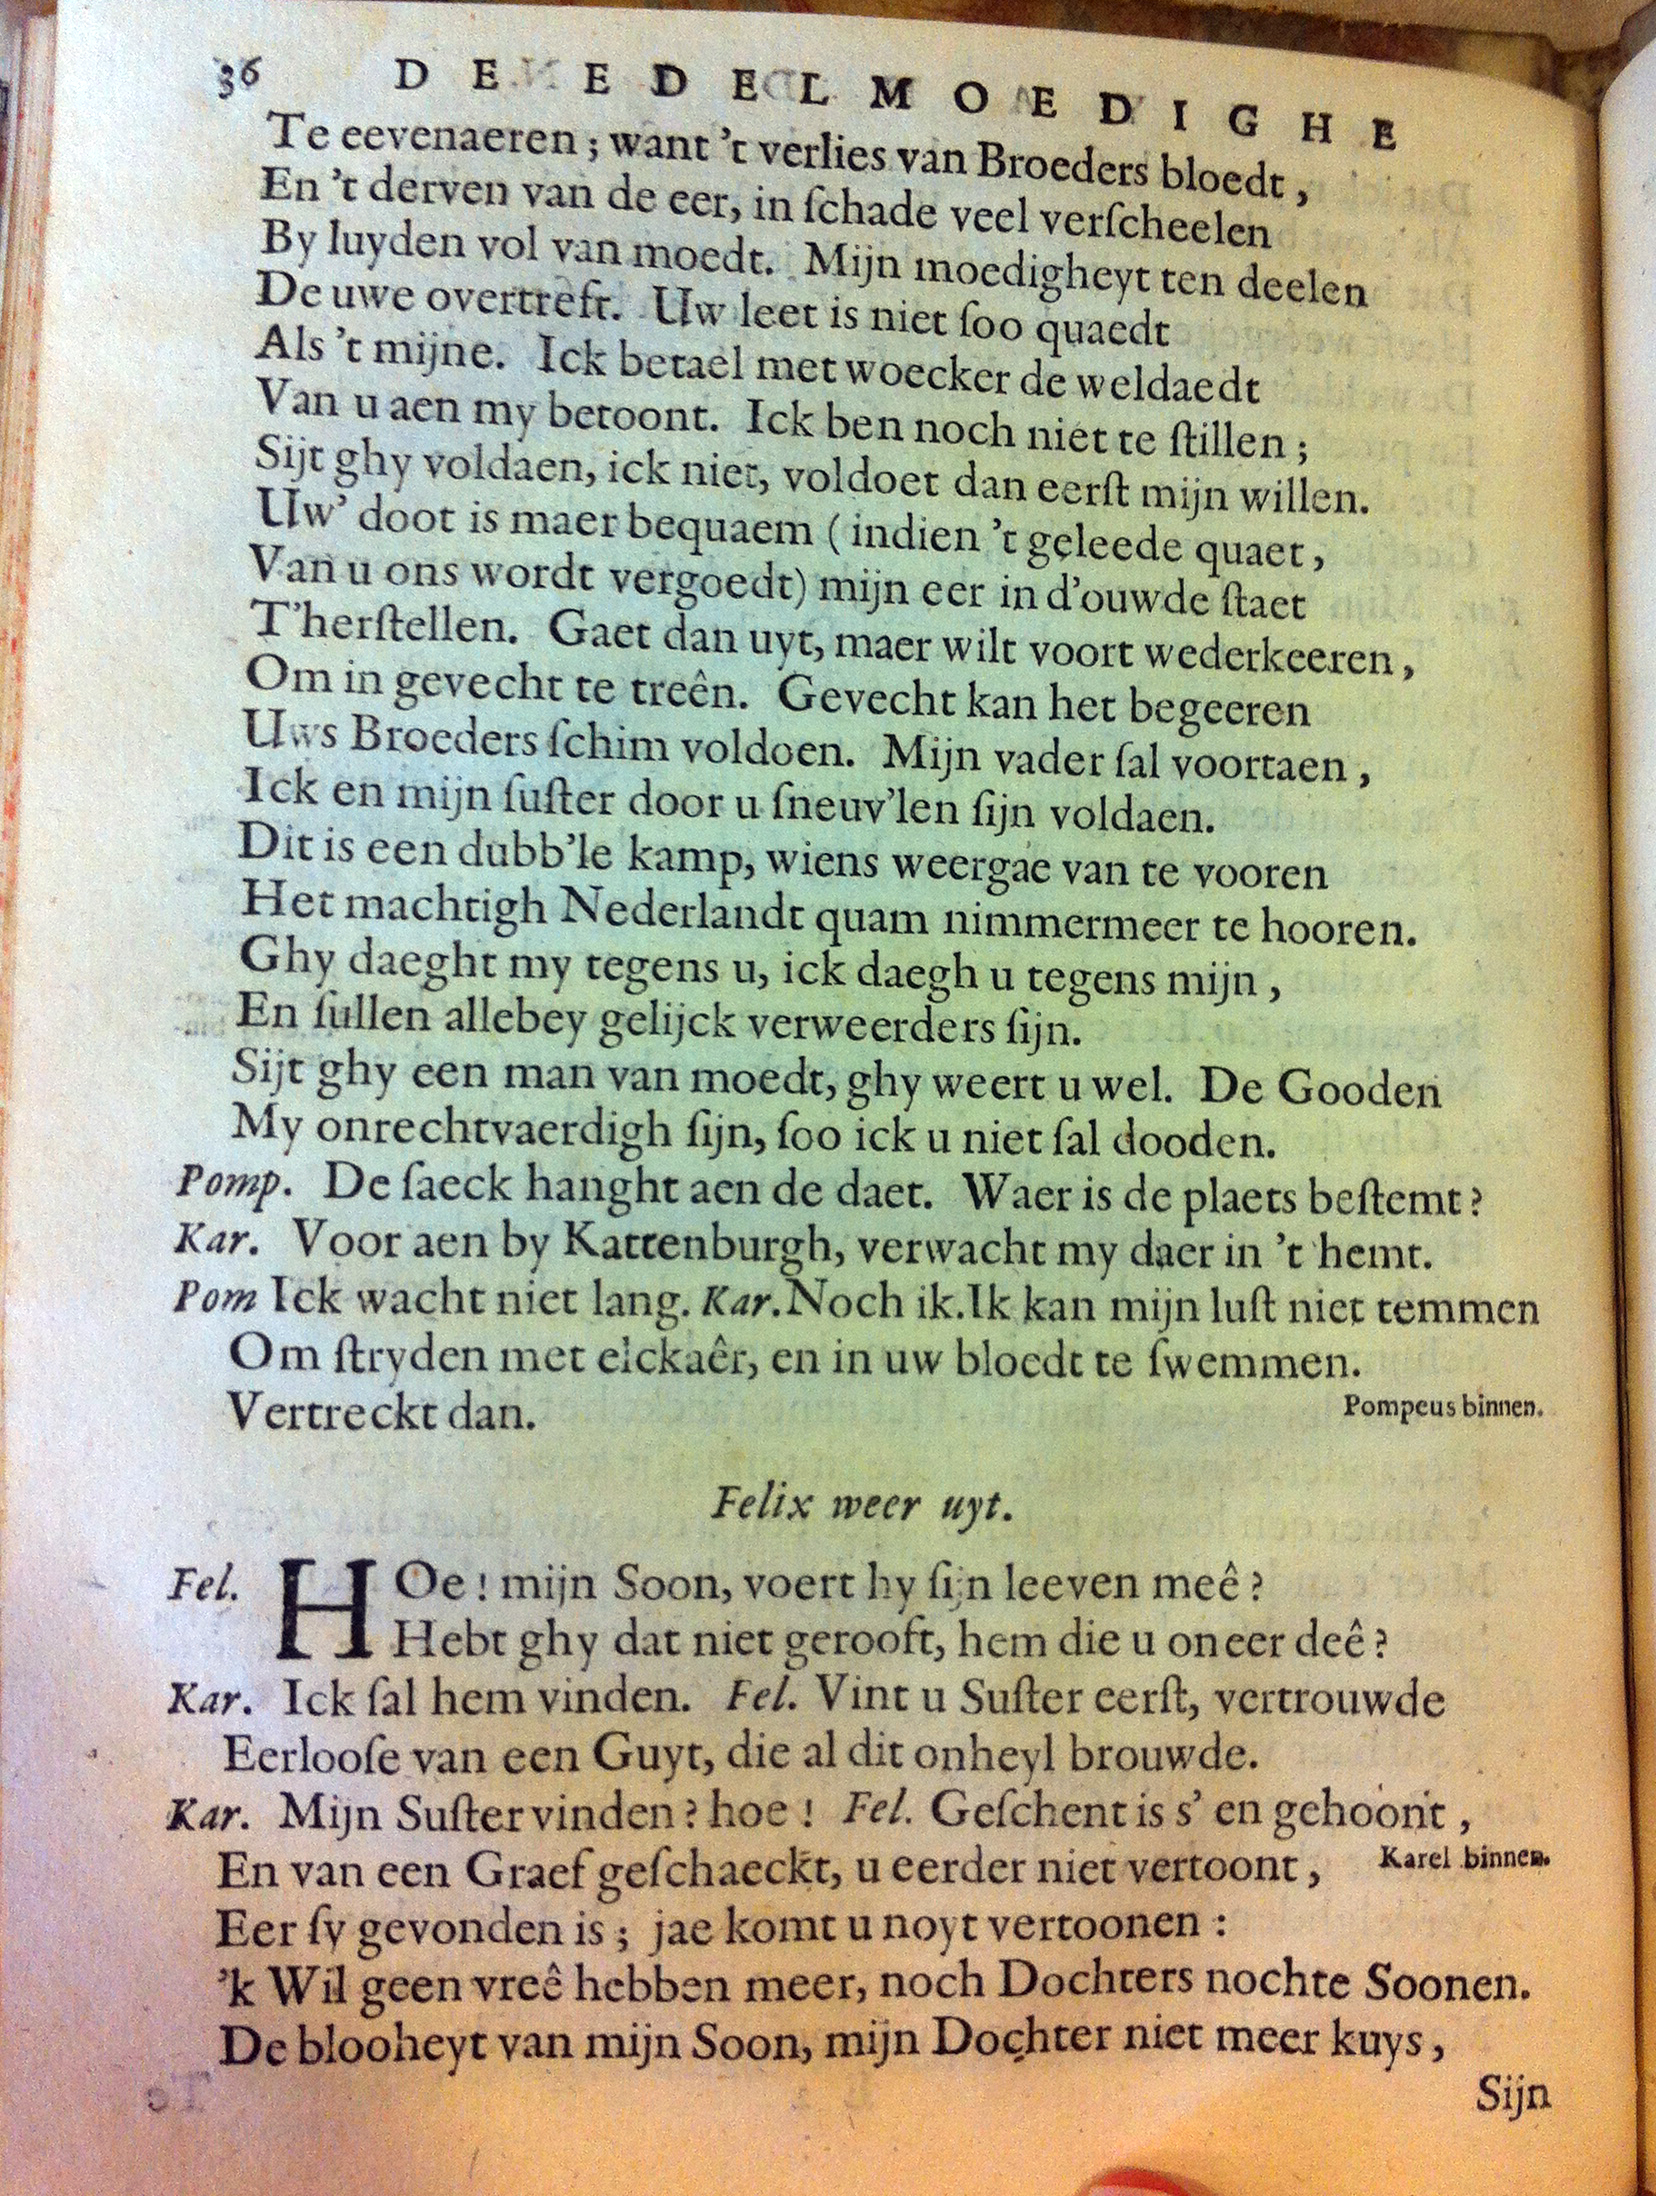 36 DE EDELMOEDIGHE
Te eevenaeren ; want 't verlies van Broeders bloedt ,
En 't derven van de eer, in ſchade veel verſcheelen
By luyden vol van moedt. Mijn moedigheyt ten deelen
De uwe overtreft. Uw leet is niet ſoo quaedt
Als 't mijne. Ick betael met woecker de weldaedt
Van u aen my betoont. Ick ben noch niet te ſtillen ;
Sijt ghy voldaen, ick niet, voldoet dan eerſt mijn willen.
Uw' doot is maer bequaem ( indien 't geleede quaet ,
Van u ons wordt vergoedt) mijn eer in d'ouwde ſtaet
T'herſtellen. Gaet dan uyt, maer wilt voort wederkeeren ,
Om in gevecht te treên. Gevecht kan het begeeren
Uws Broeders ſchim voldoen. Mijn vader ſal voortaen ,
Ick en mijn ſuſter door u ſneuv'len ſijn voldaen.
Dit is een dubb'le kamp, wiens weergae van te vooren
Het machtigh Nederlandt quam nimmermeer te hooren.
Ghy daeght my tegens u, ick daegh u tegens mijn ,
En ſullen allebey gelijck verweerders ſijn.
Sijt ghy een man van moedt, ghy weert u wel. De Gooden
My onrechtvaerdigh ſijn, ſoo ick u niet ſal dooden.
Pomp. De ſaeck hanght aen de daet. Waer is de plaets beſtemt ?
Kar. Voor aen by Kattenburgh, verwacht my daer in 't hemt.
Pom Ick wacht niet lang. Kar. Noch ik. Ik kan mijn luſt niet temmen
Om ſtryden met elckaêr, en in uw bloedt te ſwemmen.
Vertreckt dan. Pompeus binnen.
Felix weer uyt.
Fel. HOe ! mijn Soon, voert hy ſijn leeven meê ?
Hebt ghy dat niet gerooft, hem die u oneer deê ?
Kar. Ick ſal hem vinden. Fel. Vint u Suſter eerſt, vertrouwde
Eerlooſe van een Guyt, die al dit onheyl brouwde.
Kar. Mijn Suſter vinden ? hoe ! Fel. Geſchent is s' en gehoont ,
En van een Graef geſchaeckt, u eerder niet vertoont , Karel binnen.
Eer ſy gevonden is ; jae komt u noyt vertoonen :
'k Wil geen vreê hebben meer, noch Dochters nochte Soonen.
De blooheyt van mijn Soon, mijn Dochter niet meer kuys ,
Sijn